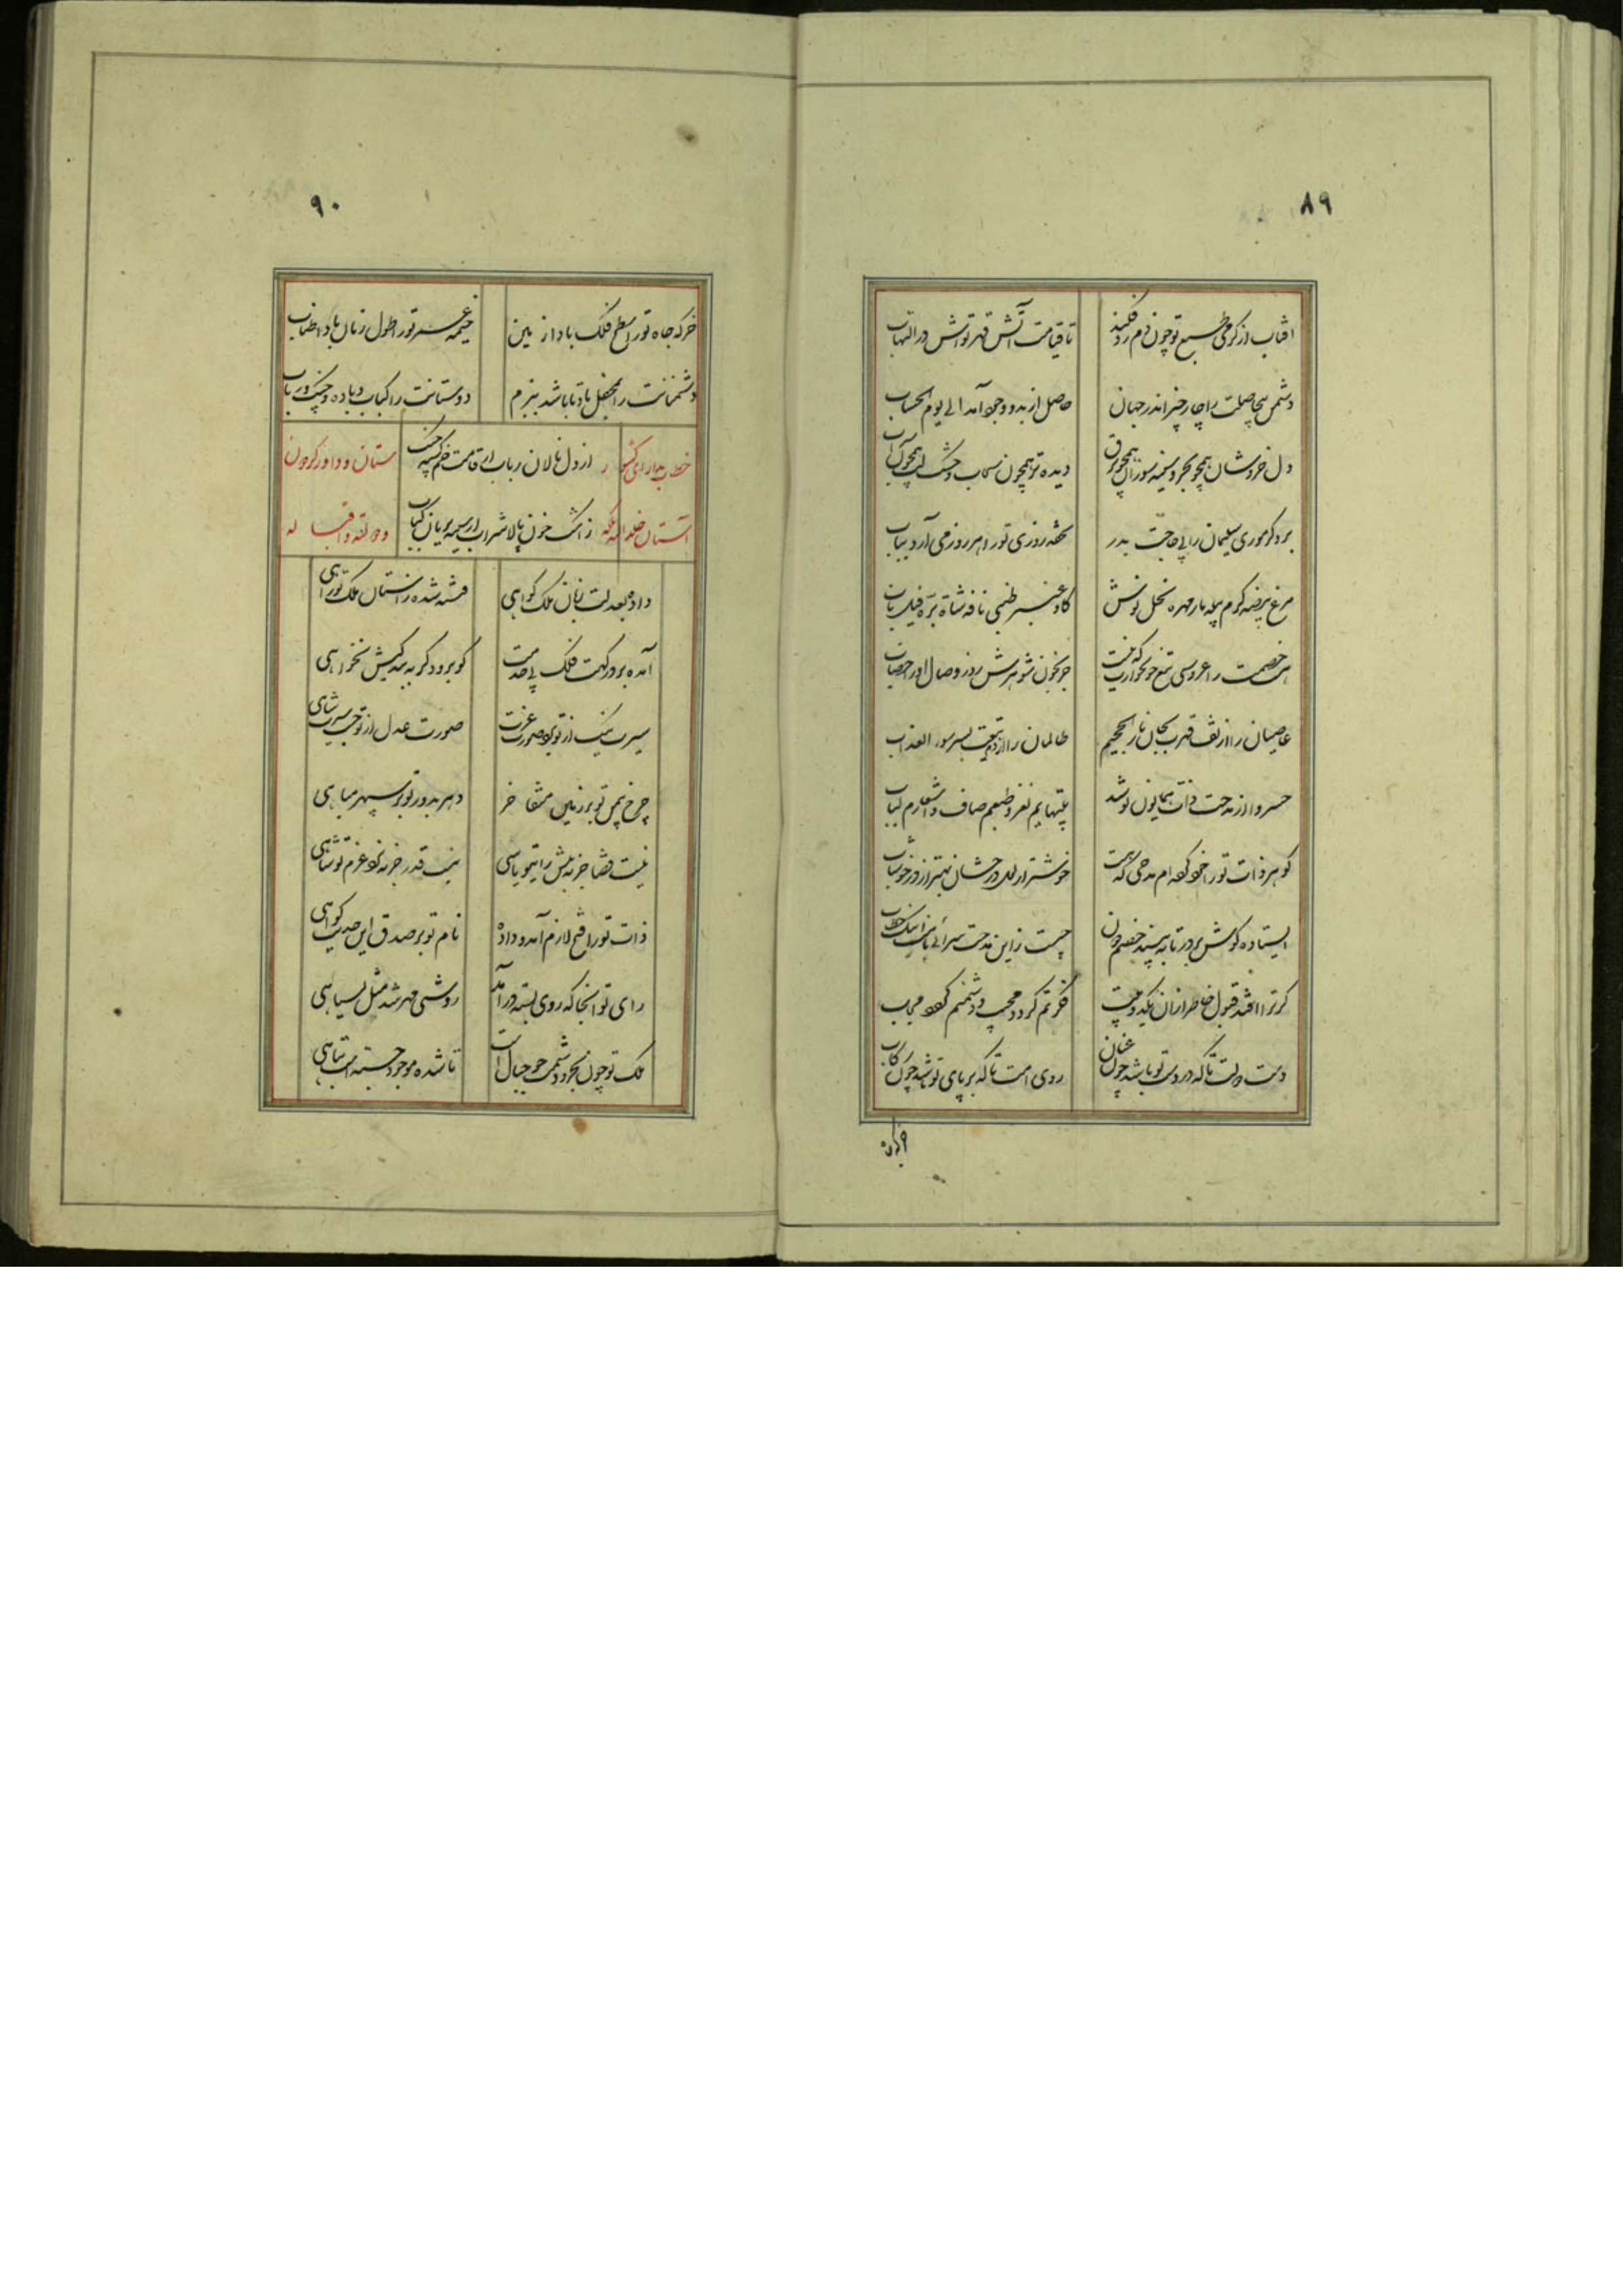 ۸۹
آفتاب از گرمی طبع تو چون دم زد فکند تا قیامت آتش قهر تواش در التهاب
دشمن بیحاصلت را چار چیز اندر جهان حاصل از بدو وجود آمد الی یوم الحساب
دل خروشان همچو بحر و سینه سوزان همچو برق دیده تر همچون سحاب و خشک لب همچون سراب
برد گر موری سلیمان را بی حاجت بدر تحفه روزی تو را هر روز می آرد
مرغ بیضه کرم پیله مار مهره نحل نوش گاو عنبر ظبی نافه شاة بره فیل ناب
خصمت را عروسی تیغ خونخواریت که نیست جز بخون شوهرش روز وصال او را خضاب
عاصیان را از تف قهرت بجان نار الجحیم ظالمان را از دم تیغت بسر سوء العذاب
خسروا از مدحت ذات همایون تو شد بیتهایم نغز و طبعم صاف و اشعارم لباب
گوهر ذات تو را خود گفته ام مدحی که هست خوشتر از لعل درخشان بهتر از در خوشاب
ایستاده گوش بر در تا به بینید خصم چون چیست زاین مدحت سرائی
گر ترا افتد قبول خاطر از آن یکدو بیت خرم گردد محب و دشمنم گردد
دست دولت تا که در دست تو باشد چون عنان روی امت تا که بر پای تو شد چون رکاب
۹۰
خرگه جاه تو را سطح فلک باد از زمین خیمه عمر تو را طول زمان باد اطناب
دشمنانت را بمحفل باد تا باشد ببزم دوستانت را کباب و باده و چنگ و رباب
از دل نالان رباب از قامت خم گشته چنگ
ز اشک خون پالا شراب از سینه بریان کباب
خطاب بدارای کشور ستان و داور گردون
آستان خلد الله ملکه و دولته و اقباله
داده بعدلت زبان ملک گواهی فتنه شده ز آستان ملک تو راهی
آمده بر درگهت فلک پی خدمت کو برود گر به بندگیش نخواهی
سیرت نیک از تو بود صورت عزت صورت عدل از تو جست سیرت شاهی
چرخ بیمن تو بر زمین متفاخر دهر بدور تو بر سپهر مباهی
نیست قضا جز به پیش رای تو پاسی نیست قدر جز به نزد عزم تو شاهی
ذات تو را فتح لازم آمد و داده نام تو بر صدق این حدیث گواهی
رای تو آنجا که روی بسته در آمد روشنی مهر شد مثل بسیاهی
ملک تو چون بحر و دشمنت چو حباب است تا شده موجود جسته است تباهی